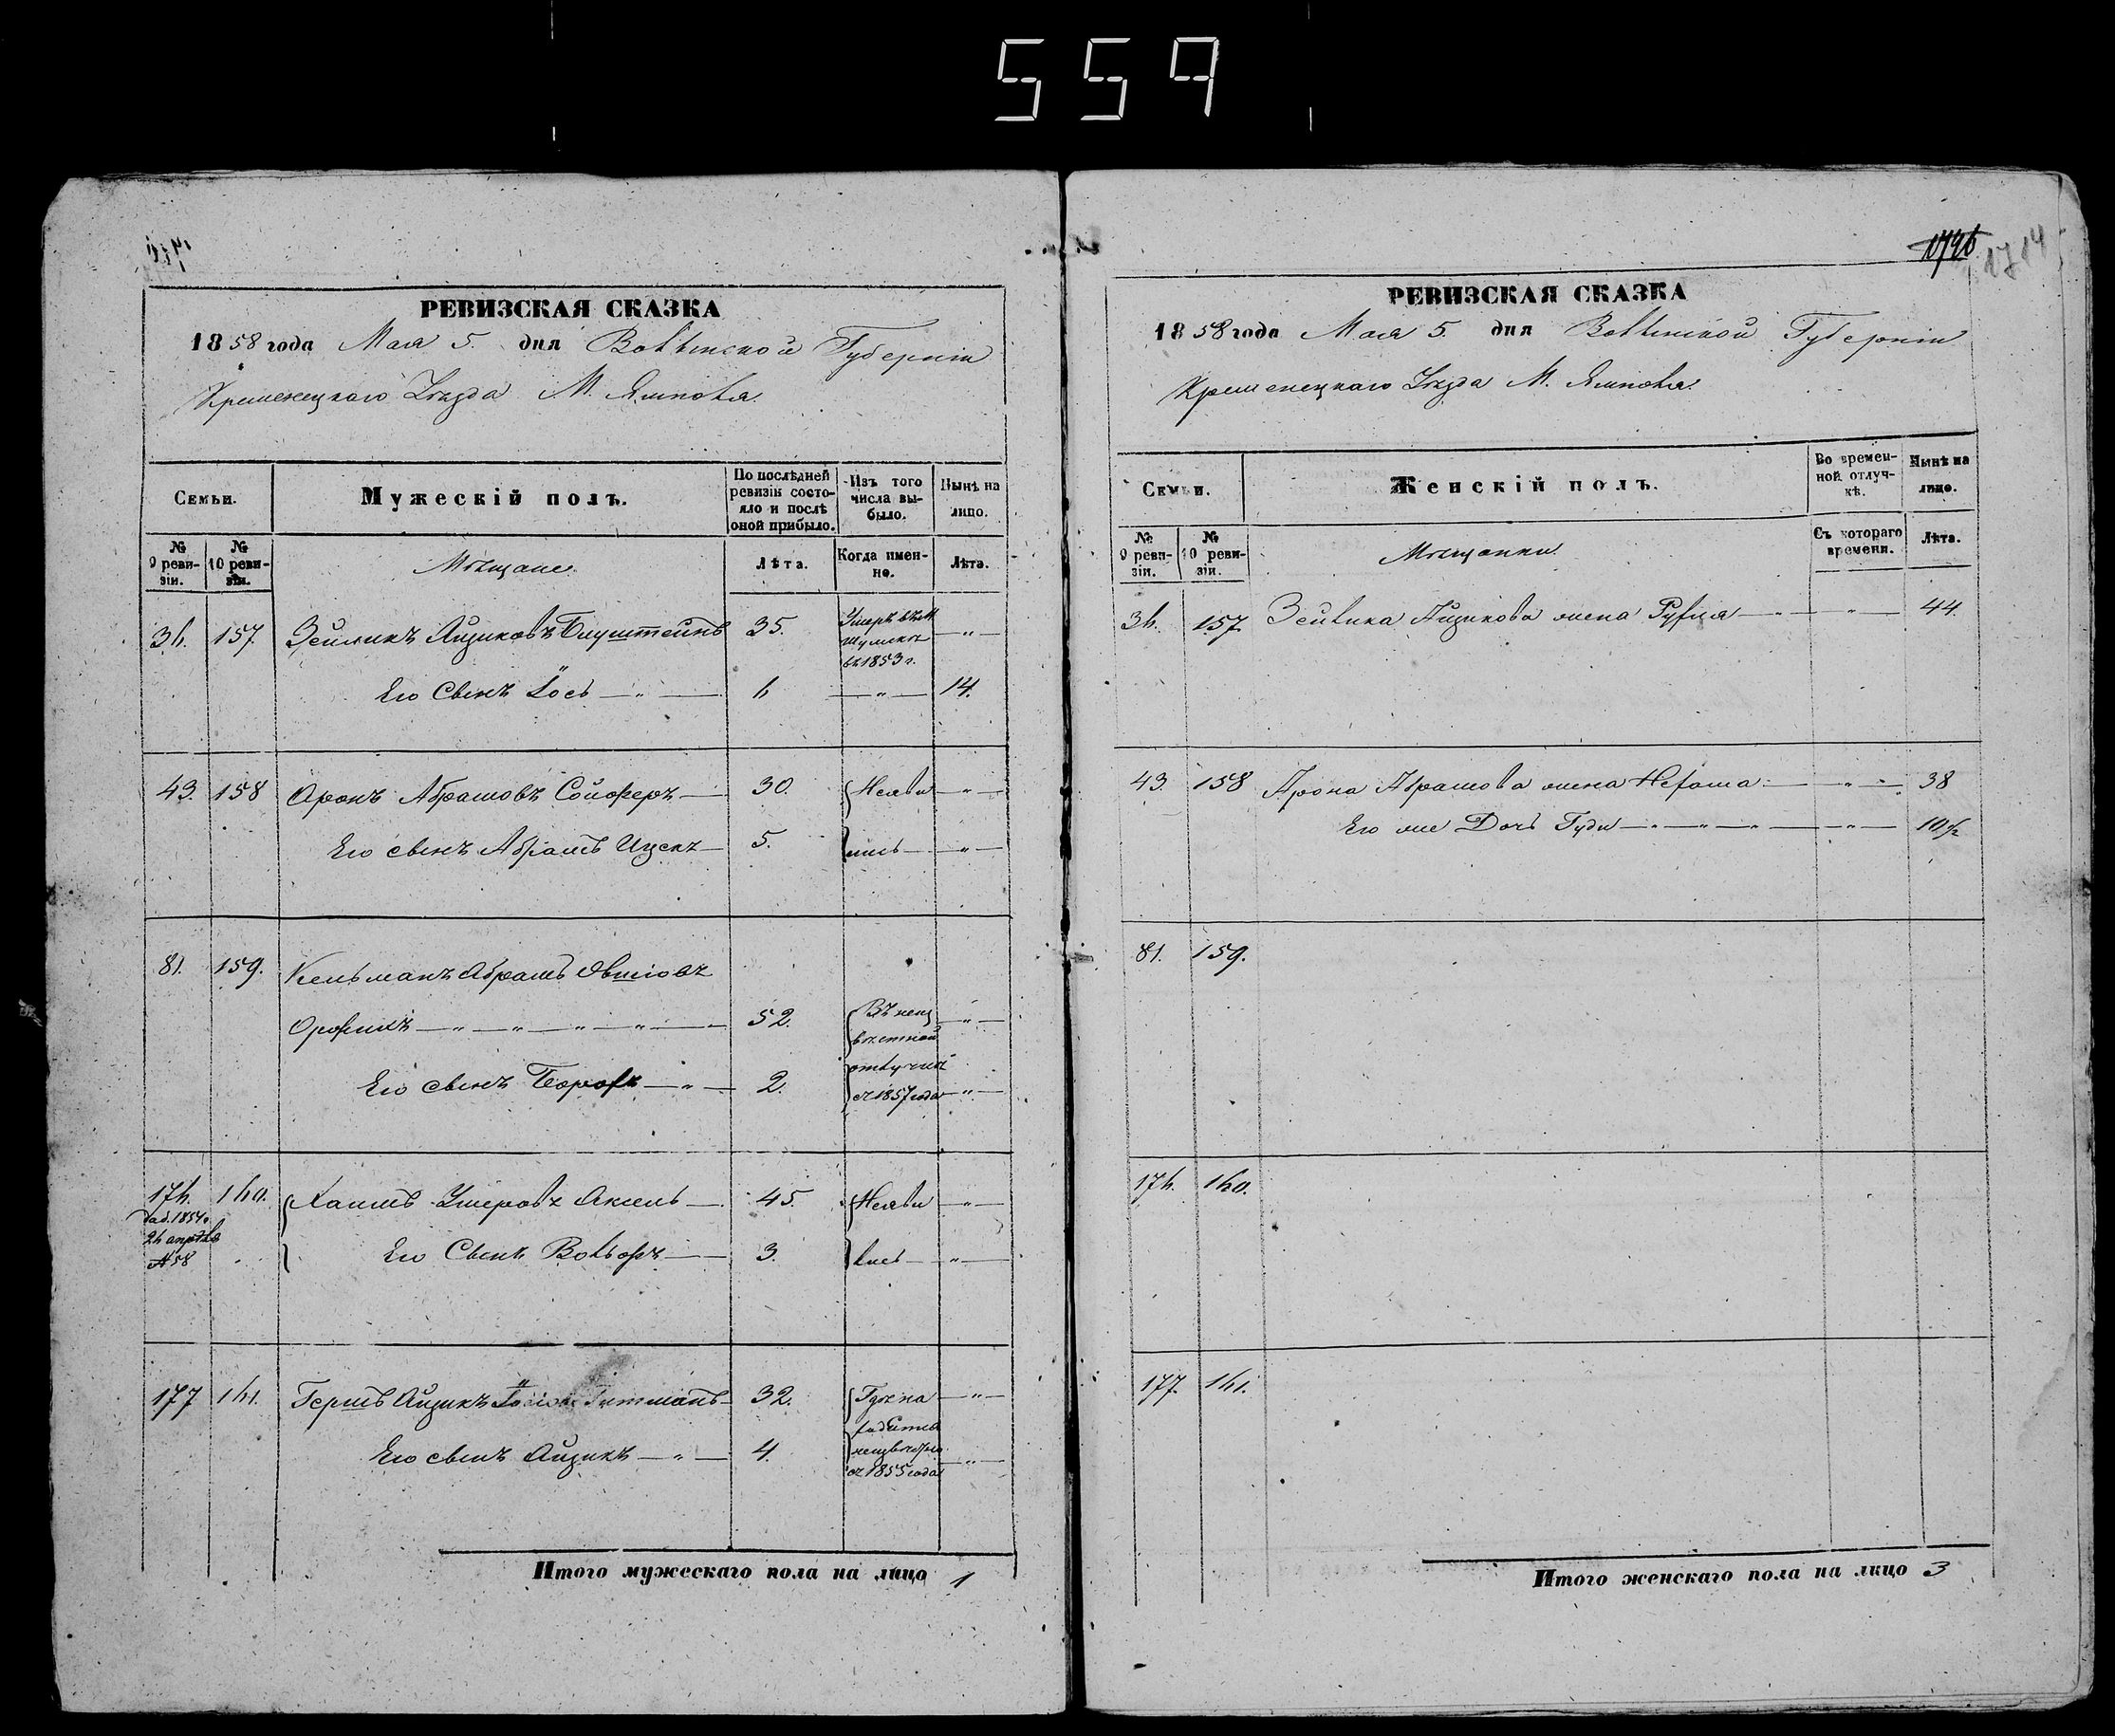 559
РЕВИЗСКАЯ СКАЗКА
1858 года Мая 5. дня Волынской Губерніи
Кременецкаго Уѣзда М. Ямполя.
Семьи.
Мужескій полъ.
По послѣдней ревизіи состояло и послѣ оной прибыло.
Изъ того числа выбыло.
Нынѣ на лицо.
№ 9 ревизіи.
№ 10 ревизіи.
Мѣщане.
Лѣта.
Когда именно.
Лѣта.
36. 157. Зейликъ Айзиковъ 35. Умеръ въ М. Шумскѣ въ 1853 г. — " —
Его Сынъ Іось — " — 6 — " — 14.
43. 158 Аронъ Абрамовъ Сойферъ — 30. Неяви — " —
Его сынъ Абрамъ Ицекъ — 5. лись — " —
81. 159. Кельманъ Абрамъ Овшіовъ
— " — " — " — " — 52. Въ неизвѣстной — " —
Его сынъ — " — 2. отлучкѣ съ 1857 года — " —
176. 160. Хаимъ Умеровъ Аксель — 45. Неяви — " —
доп. 1854 г.
26 апрѣля
№ 58
Его Сынъ — 3. лись — " —
177 161. Гершъ Айзикъ 32. — " —
Его сынъ Айзикъ — " — 4. съ 1855 года — " —
Итого мужескаго пола на лицо 1
1726
1714
РЕВИЗСКАЯ СКАЗКА
1858 года Мая 5. дня Волынской Губерніи
Кременецкаго Уѣзда М. Ямполя.
Семьи.
Женскій полъ.
Во временной отлучкѣ.
Нынѣ на лицо.
№ 9 ревизіи.
№ 10 ревизіи.
Мѣщанки.
Съ котораго времени.
Лѣта.
36. 157. Зейлика Айзикова жена Рухля — " — " — 44.
43. 158 Арона Абрамова жена Нехама — " — 38
Его же Дочь Гудя — " — " — " — " — 10½
81. 159.
176. 160.
177. 161.
Итого женскаго пола на лицо 3